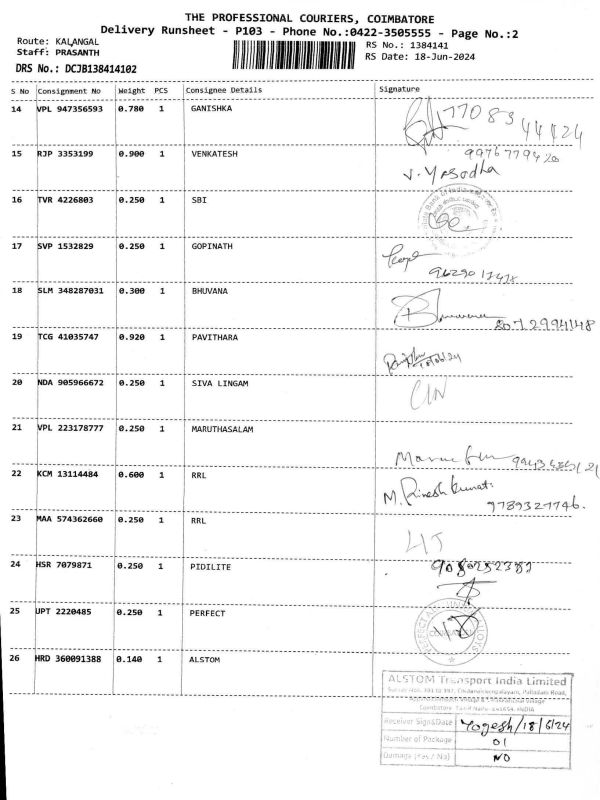 THE PROFESSIONAL COURIERS, COIMBATORE
Delivery Runsheet - P103 - Phone No.:0422-3505555 - Page No.:2
Route: KALANGAL
RS No.: 1384141
Staff: PRASANTH
RS Date: 18-Jun-2024
DRS No.: DCJB138414102
S No Consignment No Weight PCS Consignee Details Signature
14 VPL 947356593 0.780 1 GANISHKA
77083
44424
15 RJP 3353199 0.900 1 VENKATESH
9976779420
V. Yasodha
16 TVR 4226803 0.250 1 SBI
17 SVP 1532829 0.250 1 GOPINATH
18 SLM 348287031 0.300 1 BHUVANA
19 TCG 41035747 0.920 1 PAVITHARA
20 NDA 905966672 0.250 1 SIVA LINGAM
21 VPL 223178777 0.250 1 MARUTHASALAM
22 KCM 13114484 0.600 1 RRL
M. Dinesh kumar
9789327746.
23 MAA 574362660 0.250 1 RRL
24 HSR 7079871 0.250 1 PIDILITE
9080252382
25 UPT 2220485 0.250 1 PERFECT
26 HRD 360091388 0.140 1 ALSTOM
ALSTOM Transport India Limited
Coimbatore Tamil Nadu -641654. INDIA
Receiver Sign&Date Yogesh/18/6/24
Number of Package 01
Damage (Yes / No) NO